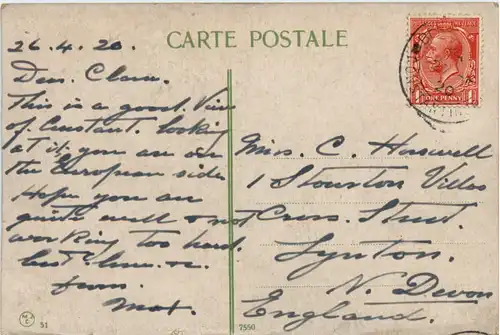 CARTE POSTALE
26.4.20.
Dear Clara.
This is a good View
of Constant. looking
at it you are on
the European side
Hope you are
quite well & not
working too hard.
best love. &c.
Max.
Mrs. C. Horswell
1 Stourton Villas
Cross. Street.
Lynton.
N. Devon
England.
ONE PENNY
51
7550